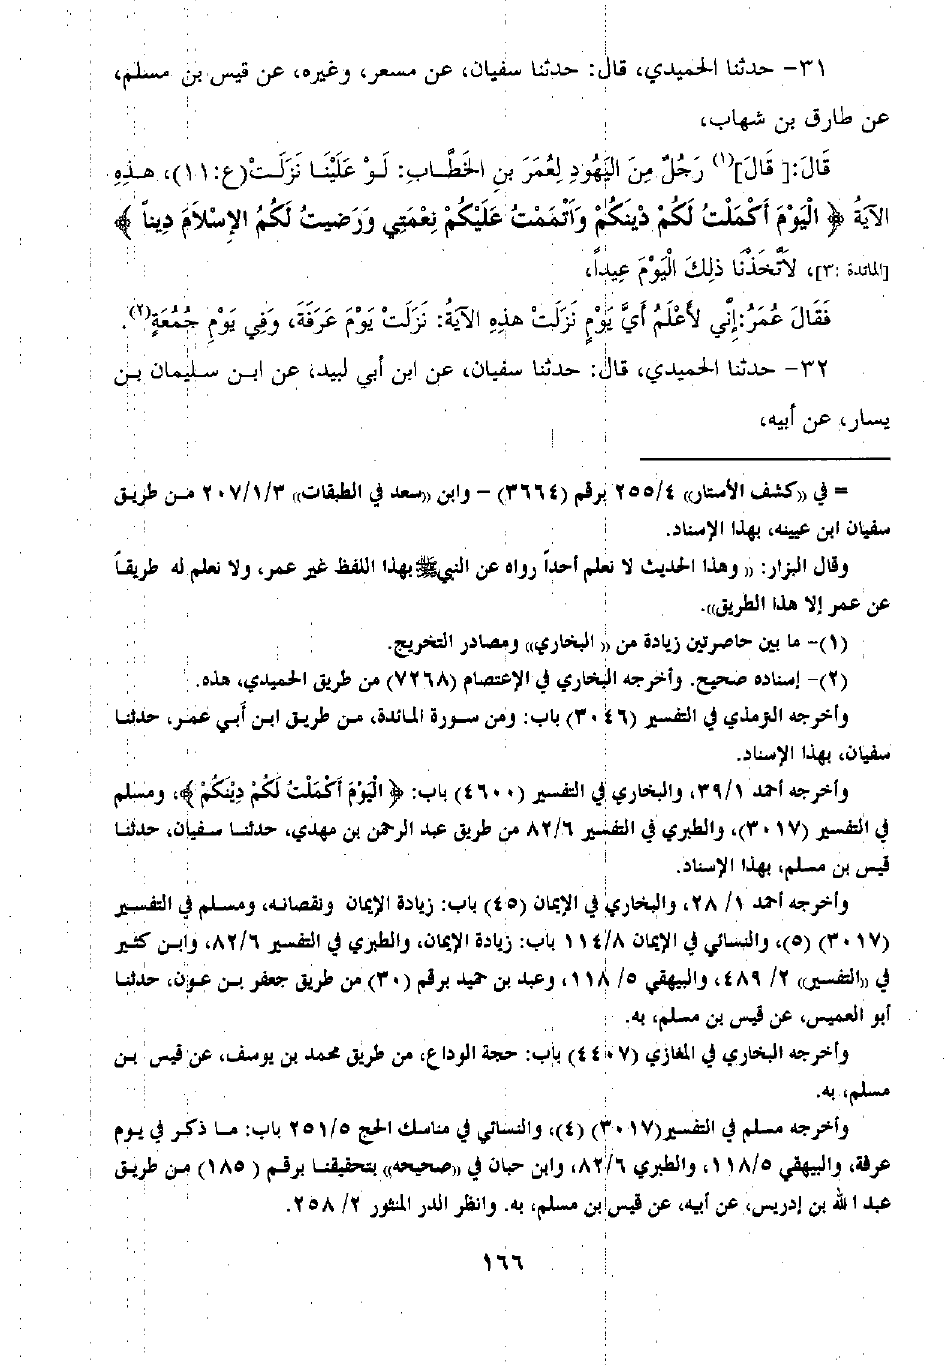 ٣١- حدثنا الحميدي، قال: حدثنا سفيان، عن مسعر، وغيره، عن قيس بن مسلم،
عن طارق بن شهاب،
قَالَ:[ قَالَ](١) رَجُلٌ مِنَ الْيَهُودِ لِعُمَرَ بنِ الْخَطَّابِ: لَوْ عَلَيْنَا نَزَلَتْ(ع:١١)، هذِهِ
الآيَةُ ﴿ الْيَوْمَ أَكْمَلْتُ لَكُمْ دِيْنَكُمْ وَأَتْمَمْتُ عَلَيْكُمْ نِعْمَتِي وَرَضِيتُ لَكُمُ الإِسْلاَمَ دِيناً ﴾
[المائدة :٣]، لاَتَّخَذْنَا ذلِكَ الْيَوْمَ عِيداً،
فَقَالَ عُمَرُ:إِنِّي لأَعْلَمُ أَيَّ يَوْمٍ نَزَلَتْ هذِهِ الآيَةُ: نَزَلَتْ يَوْمَ عَرَفَةَ، وَفِي يَوْمِ جُمُعَةٍ(٢).
٣٢- حدثنا الحميدي، قال: حدثنا سفيان، عن ابن أبي لبيد، عن ابن سليمان بن
يسار، عن أبيه،
= في «كشف الأستار» ٢٥٥/٤ برقم (٣٦٦٤) – وابن «سعد في الطبقات» ٢٠٧/١/٣ من طريق
سفيان ابن عيينه، بهذا الإسناد.
وقال البزار: « وهذا الحديث لا نعلم أحداً رواه عن النبيﷺبهذا اللفظ غير عمر، ولا نعلم له طريقاً
عن عمر إلا هذا الطريق».
(١)- ما بين حاصرتين زيادة من « البخاري» ومصادر التخريج.
(٢)- إسناده صحيح. وأخرجه البخاري في الإعتصام (٧٢٦٨) من طريق الحميدي، هذه.
وأخرجه الترمذي في التفسير (٣٠٤٦) باب: ومن سورة المائدة، من طريق ابن أبي عمر، حدثنا
سفيان، بهذا الإسناد.
وأخرجه أحمد ٣٩/١، والبخاري في التفسير (٤٦٠٠) باب: ﴿ الْيَوْمَ أَكْمَلْتُ لَكُمْ دِيْنَكُمْ ﴾، ومسلم
في التفسير (٣٠١٧)، والطبري في التفسير ٨٢/٦ من طريق عبد الرحمن بن مهدي، حدثنا سفيان، حدثنا
قيس بن مسلم، بهذا الإسناد.
وأخرجه أحمد ١/ ٢٨، والبخاري في الإيمان (٤٥) باب: زيادة الإيمان ونقصانه، ومسلم في التفسير
(٣٠١٧) (٥)، والنسائي في الإيمان ١١٤/٨ باب: زيادة الإيمان، والطبري في التفسير ٨٢/٦، وابن كثير
في «التفسير» ٢/ ٤٨٩، والبيهقي ٥/ ١١٨، وعبد بن حميد برقم (٣٠) من طريق جعفر بن عون، حدثنا
أبو العميس، عن قيس بن مسلم، به.
وأخرجه البخاري في المغازي (٤٤٠٧) باب: حجة الوداع، من طريق محمد بن يوسف، عن قيس بن
مسلم، به.
وأخرجه مسلم في التفسير(٣٠١٧) (٤)، والنسائي في مناسك الحج ٢٥١/٥ باب: ما ذكر في يوم
عرفة، والبيهقي ١١٨/٥، والطبري ٨٢/٦، وابن حبان في «صحيحه» بتحقيقنا برقم ( ١٨٥) من طريق
عبد الله بن إدريس، عن أبيه، عن قيس بن مسلم، به. وانظر الدر المنثور ٢/ ٢٥٨.
١٦٦